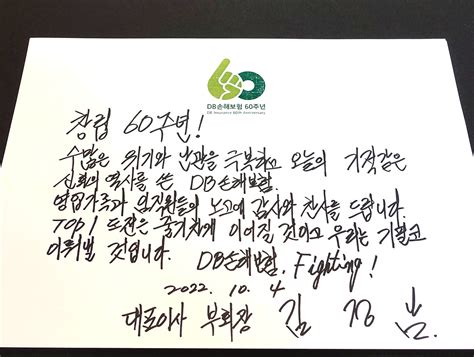 60
DB손해보험 60주년
DB Insurance 60th Anniversary
창립 60주년!
수많은 위기와 난관을 극복하고 오늘의 기적같은
신화의 역사를 쓴 DB손해보험.
영업가족과 임직원들의 노고에 감사와 찬사를 드립니다.
TOP1 도전은 줄기차게 이어질 것이고 우리는 기필코
이뤄낼 것입니다. DB손해보험. Fighting!
2022. 10. 4
대표이사 부회장 김 정 남.